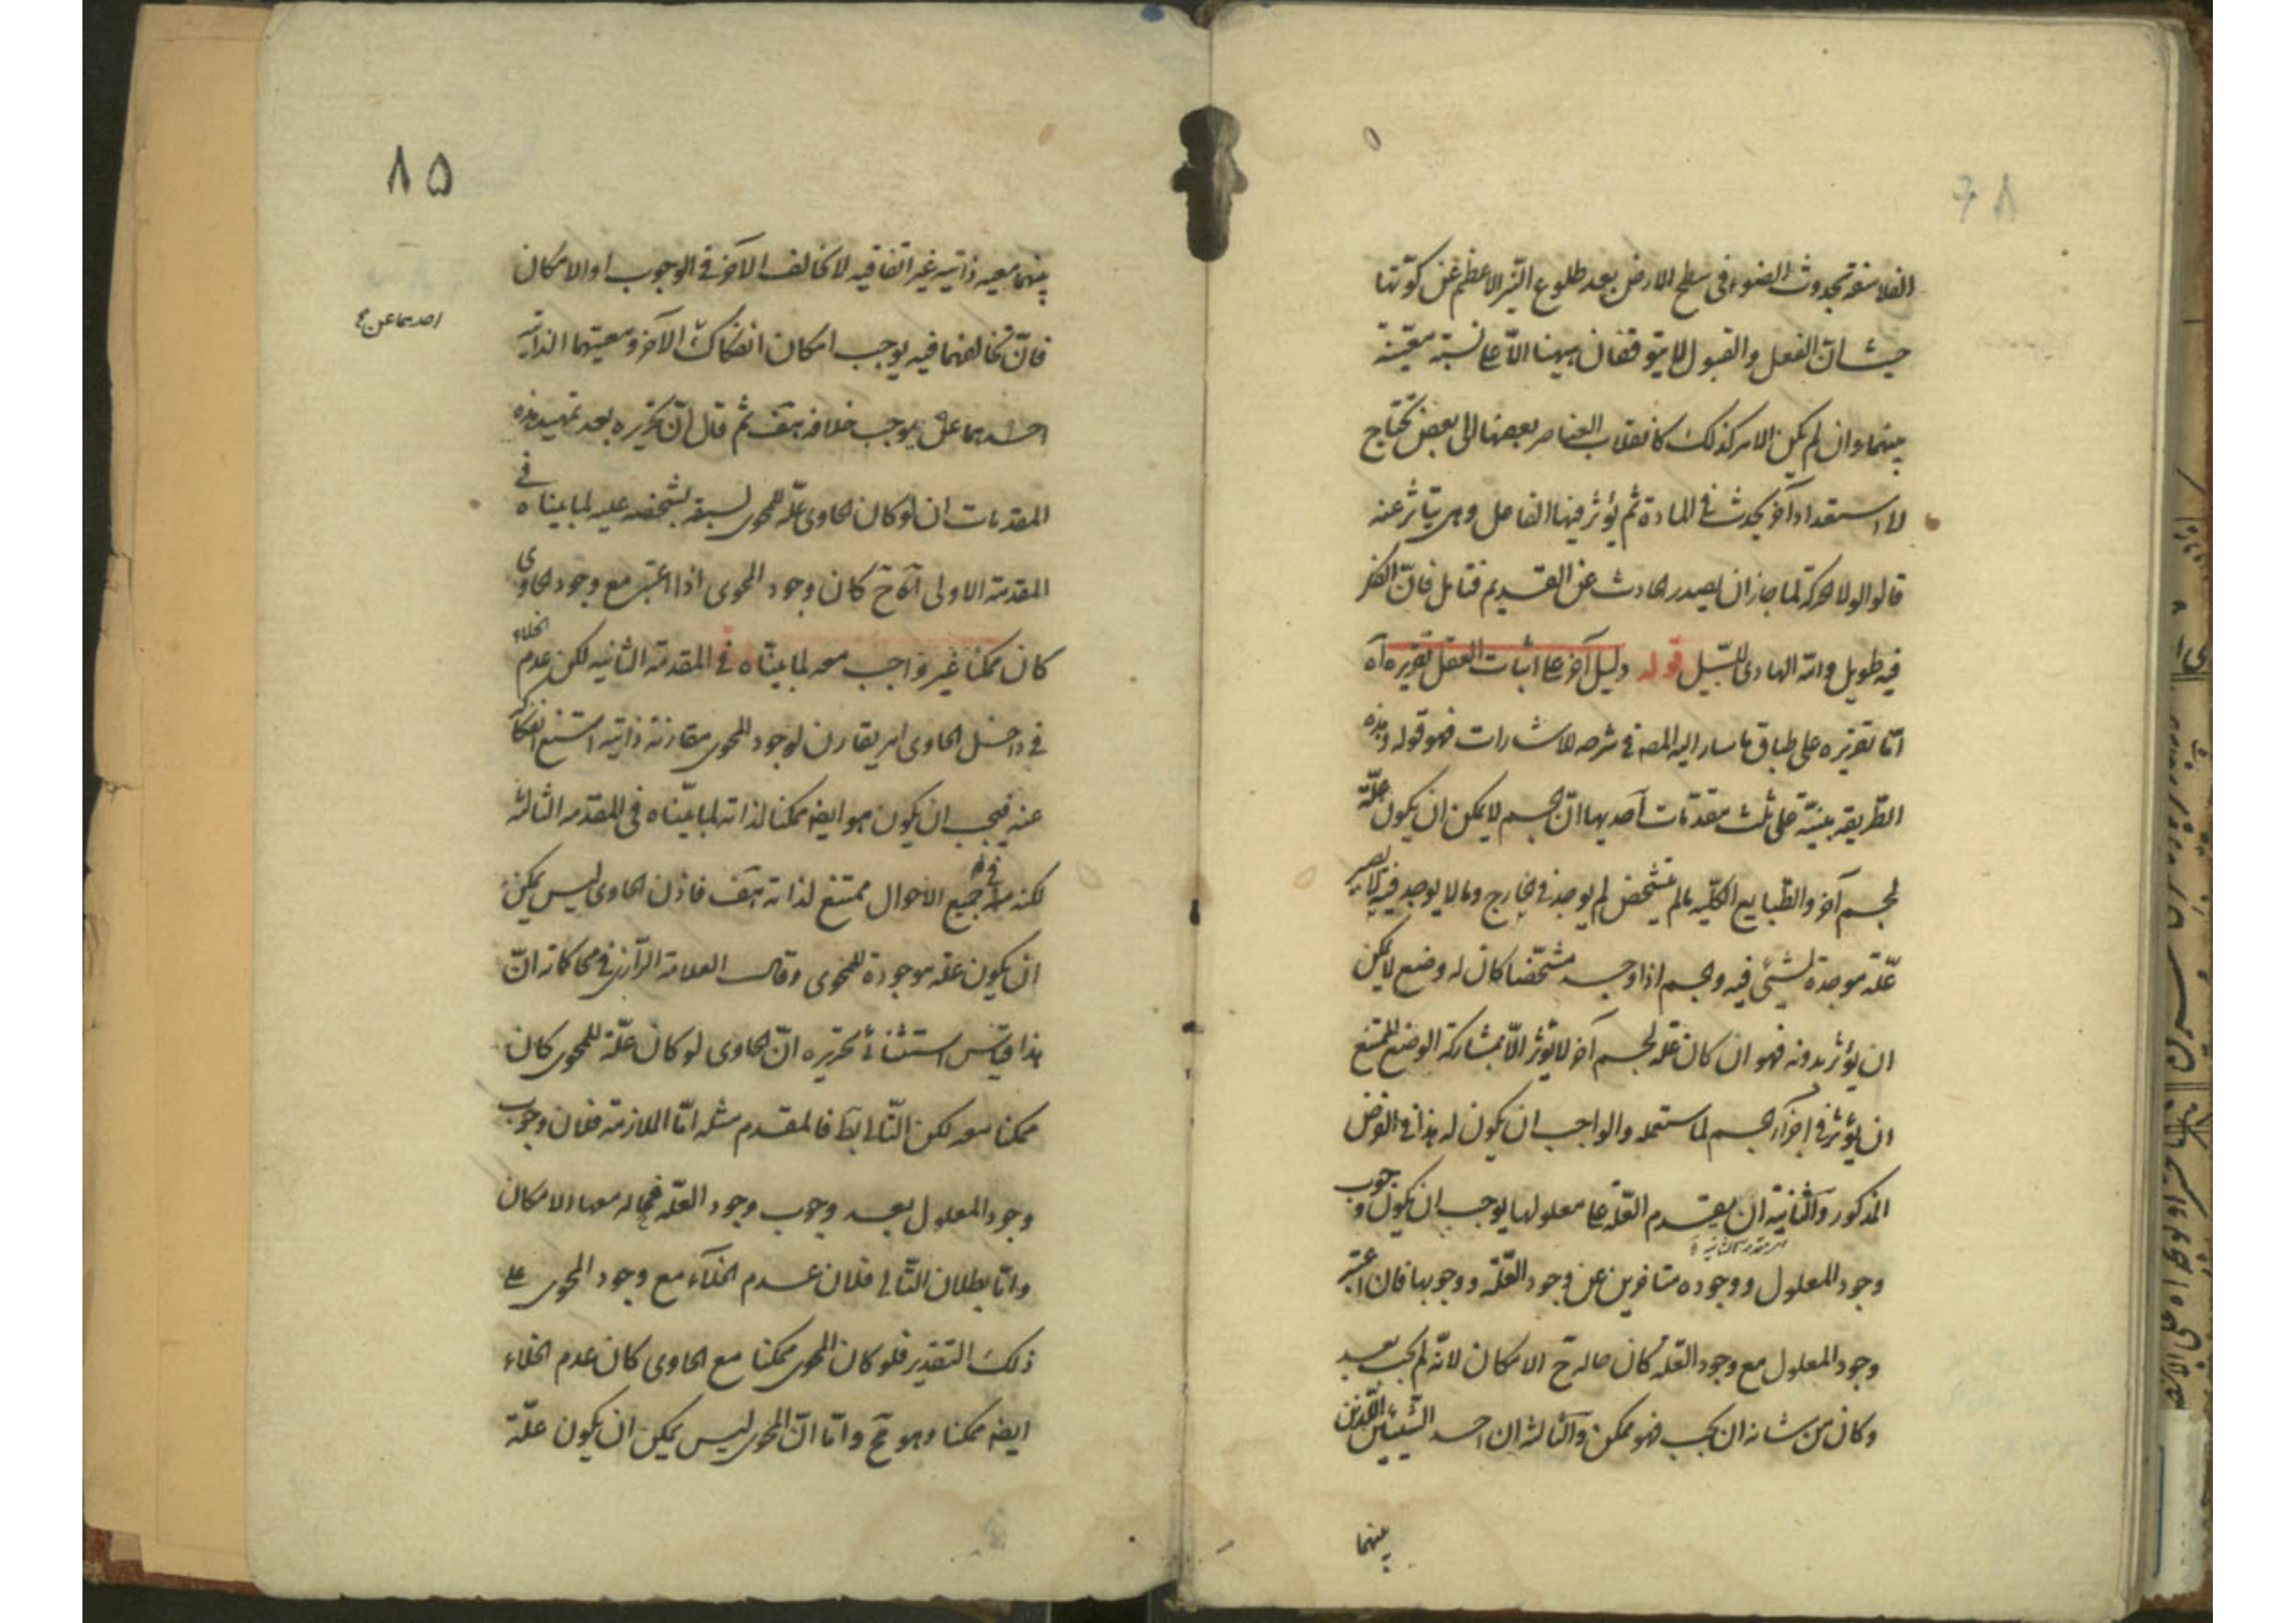 الفلاسفة بحدوث الضوء فى سطح الارض بعد طلوع النيّر الاعظم عن كوّتها
حيث انّ الفعل والقبول لا يتوقفان بينها الّا على نسبة معيّنة
بينهما وان لم يكن الامر كذلك كانقلاب العناصر بعضها الى بعض تحتاج
لا استعداد آخر يحدث فى المادة ثم يؤثر فيها الفاعل وهى يتاثر عنه
قالوا لولا الحركة لما جاز ان يصدر الحادث عن القديم فتامل فانّ الفكر
فيه طويل والله الهادى للسّبيل قوله دليل آخر على اثبات العقل تقريره آه
امّا تقريره على طباق ما سار اليه المصه فى شرحه للاشارات فهو قوله وهذه
الطّريقه مبنيّة على ثلث مقدّمات آحديها انّ الجسم لا يمكن ان يكون علّة
لجسم آخر والطّبايع الكليّه ما لم يتشخص لم يوجد فى الخارج وما لا يوجد فيه لا يصير
علّة موجدة لشيئ فيه والجسم اذا وجد مشخّصا كان له وضع لا يمكن
ان يؤثر بدونه فهو ان كان علّة لجسم آخر لا يؤثر الّا بمشاركة الوضع الممتنع
ان يؤثر فى اجزآء الجسم لما ستعمله والواجب ان يكون له هذا فى الفرض
المذكور والثّانية ان يقدم العلّة على معلولها يوجب ان يكون وجوب
وجود المعلول ووجوده متاخرين عن وجود العلّة ووجوبها فان اعتبر
وجود المعلول مع وجود العلّة كان حاله ح الامكان لانّه لم يجب بعد
وكان من شانه ان يجب فهو ممكن والثّالثة ان احد الشّيئين اللّذين
بينهما
٨٥
بينهما معيه ذاتيه غير اتفاقيه لا يخالف الآخر فى الوجوب او الامكان
فانّ تخالفهما فيه يوجب امكان انفكاك الآخر ومعيتهما الذاتيه
احدهما عن
احدهما عن يوجب خلافه هف ثم قال انّ تحريره بعد تمهيد هذه
المقدمات ان لو كان الحاوى علّة للمحوى لسبقه بتشخصه عليه لما بيناه فى
المقدمة الاولى آه ح كان وجود المحوى اذا اعتبر مع وجود الحاوى
كان ممكنا غير واجب معه لما بيّناه فى المقدمة الثانيه لكن عدم الخلاء
فى داخل الحاوى امر يقارن لوجود المحوى مقارنة ذاتيه امتنع انفكاكه
عنه فيجب ان يكون هو ايضه ممكنا لذاته لما بيّناه فى المقدمه الثالثه
لكنه فى جميع الاحوال ممتنع لذاته هف فاذن الحاوى ليس يمكن
ان يكون علّة موجودة للمحوى وقال العلامة الرّازى فى محاكماته انّ
هذا قياس استثنائى تحريره انّ الحاوى لو كان علّة للمحوى كان
ممكنا معه لكن التّالى بط فالمقدم مثله امّا الملازمة فلان وجوب
وجود المعلول بعد وجوب وجود العلّة فحاله معها الامكان
وامّا بطلان التّالى فلان عدم الخلآء مع وجود المحوى على
ذلك التقدير فلو كان المحوى ممكنا مع الحاوى كان عدم الخلاء
ايضه ممكنا وهو مح وامّا انّ المحوى ليس يمكن ان يكون علّة